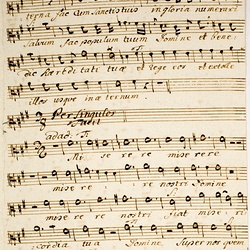 terna fac Cum Sanctis tuis in gloria numerari
Salvum fac populum tuum Domine et bene
dic hæreditati tuæ et rege eos et extolle
illos usque in æternum
Per Singulos
adag:
Mi se re re misere re
mise re re nostri Domine
mise re re nostri fiat miseri
cordia tua Domine super nos quem